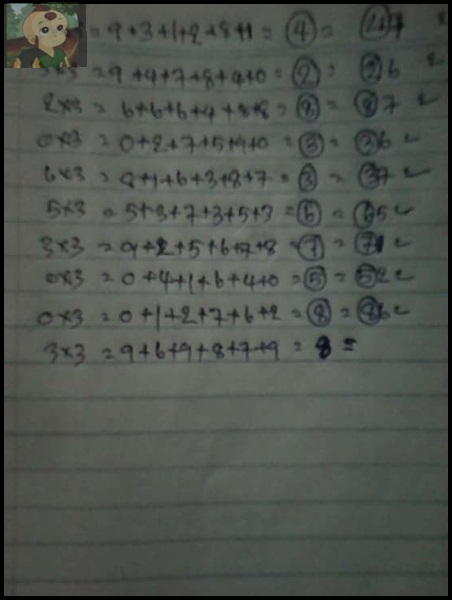 = 9+3+1+2+8+1 = 4 = 47
3×3 = 9+4+7+8+4+0 = 2 = 26
2×3 = 6+6+6+4+8+8 = 8 = 87
0×3 = 0+2+7+5+9+0 = 3 = 36
6×3 = 8+1+6+3+8+7 = 3 = 37
5×3 = 5+3+7+3+5+3 = 6 = 65
3×3 = 9+2+5+6+7+8 = 7 = 71
0×3 = 0+4+1+6+4+0 = 5 = 52
0×3 = 0+1+2+7+6+2 = 8 = 86
3×3 = 9+6+9+8+7+9 = 8 =